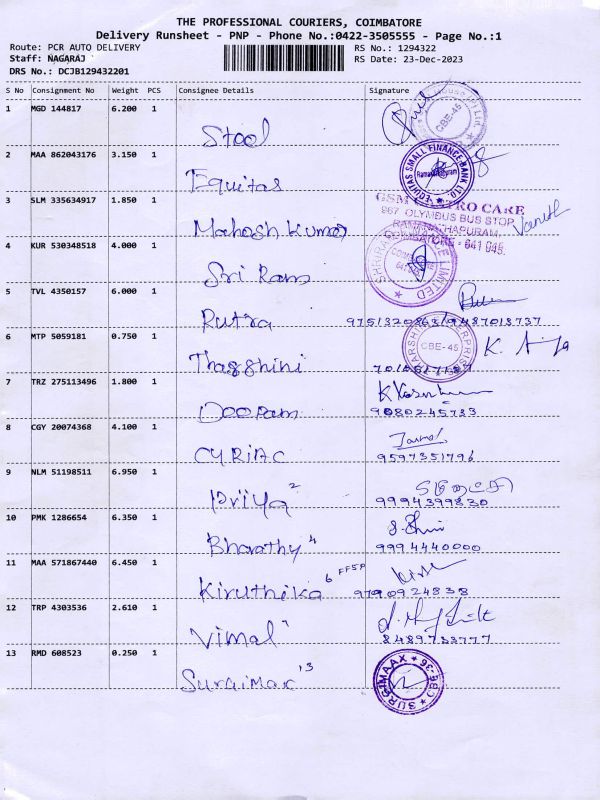 THE PROFESSIONAL COURIERS, COIMBATORE
Delivery Runsheet - PNP - Phone No.:0422-3505555 - Page No.:1
Route: PCR AUTO DELIVERY
RS No.: 1294322
Staff: NAGARAJ
RS Date: 23-Dec-2023
DRS No.: DCJB129432201
S No Consignment No Weight PCS Consignee Details Signature
1 MGD 144817 6.200 1 Stool
CBE-45
2 MAA 862043176 3.150 1 Equitas
EQUITAS SMALL FINANCE BANK LTD.
Ramanathapuram
3 SLM 335634917 1.850 1 Mahosh Kumar
OLYMBUS BUS STOP
RAMANATHAPURAM,
COIMBATORE - 641 045.
4 KUR 530348518 4.000 1 Sri Ram
5 TVL 4350157 6.000 1 Rutra
6 MTP 5059181 0.750 1 Thasshini
CBE-45
7 TRZ 275113496 1.800 1 Doopam
9080245733
8 CGY 20074368 4.100 1 CYRIAC
9597351796
9 NLM 51198511 6.950 1 Priya 2
9994399830
10 PMK 1286654 6.350 1 Bharathy 4
9994440000
11 MAA 571867440 6.450 1 Kiruthika 6 FF5P
9790924838
12 TRP 4303536 2.610 1 Vimal 7
8489733777
13 RMD 608523 0.250 1 Surgimax 13
SURGIMAAX CBE-36